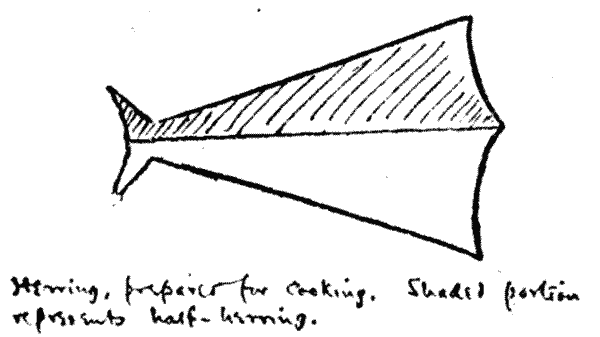 Herring, prepared for cooking. Shaded portion
represents half-herring.